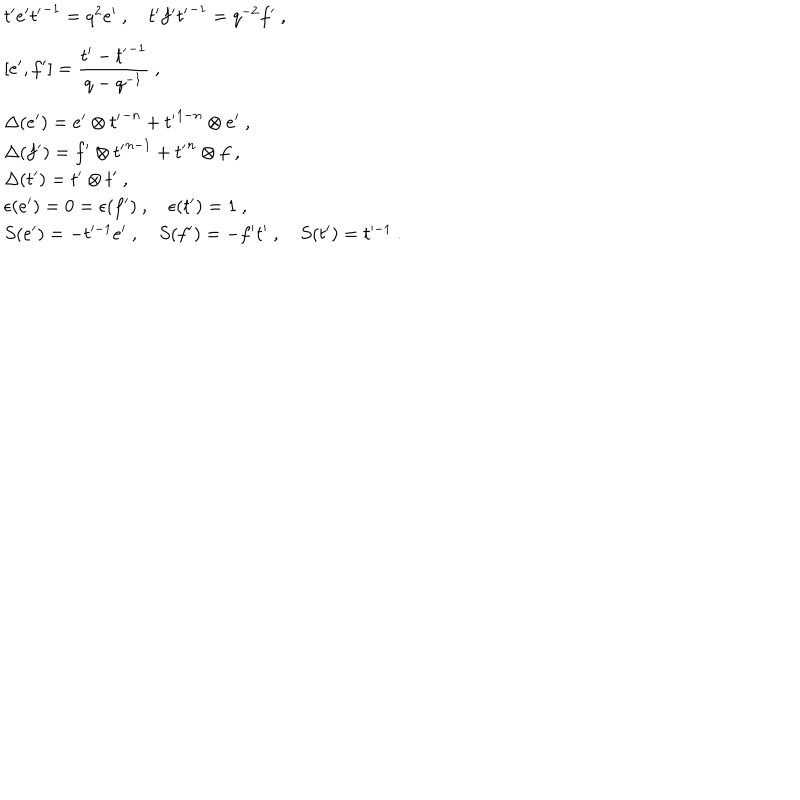 t′e′t′⁻¹ = q²e′ , t′f′t′⁻¹ = q⁻²f′ ,
[e′, f′] = \frac{t′ − t′⁻¹}{q − q⁻¹} ,
Δ(e′) = e′ ⊗ t′⁻ⁿ + t′¹⁻ⁿ ⊗ e′ ,
Δ(f′) = f′ ⊗ t′ⁿ⁻¹ + t′ⁿ ⊗ f ,
Δ(t′) = t′ ⊗ t′ ,
ϵ(e′) = 0 = ϵ(f′) , ϵ(t′) = 1 ,
S(e′) = −t′⁻¹e′ , S(f′) = −f′t′ , S(t′) = t′⁻¹ .